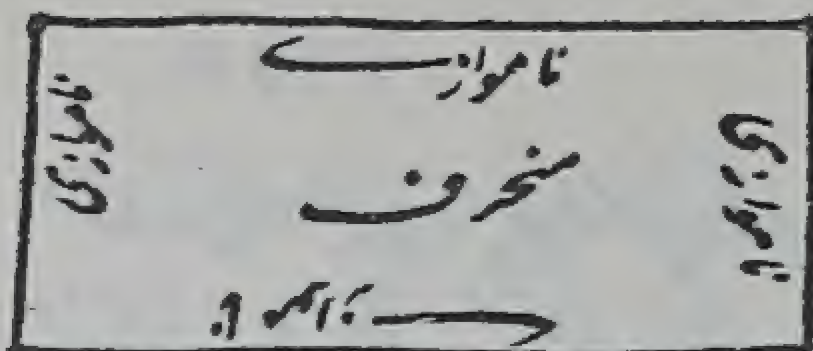 ناموازی
ناموازی
منحرف
ناموازی
ناموازی